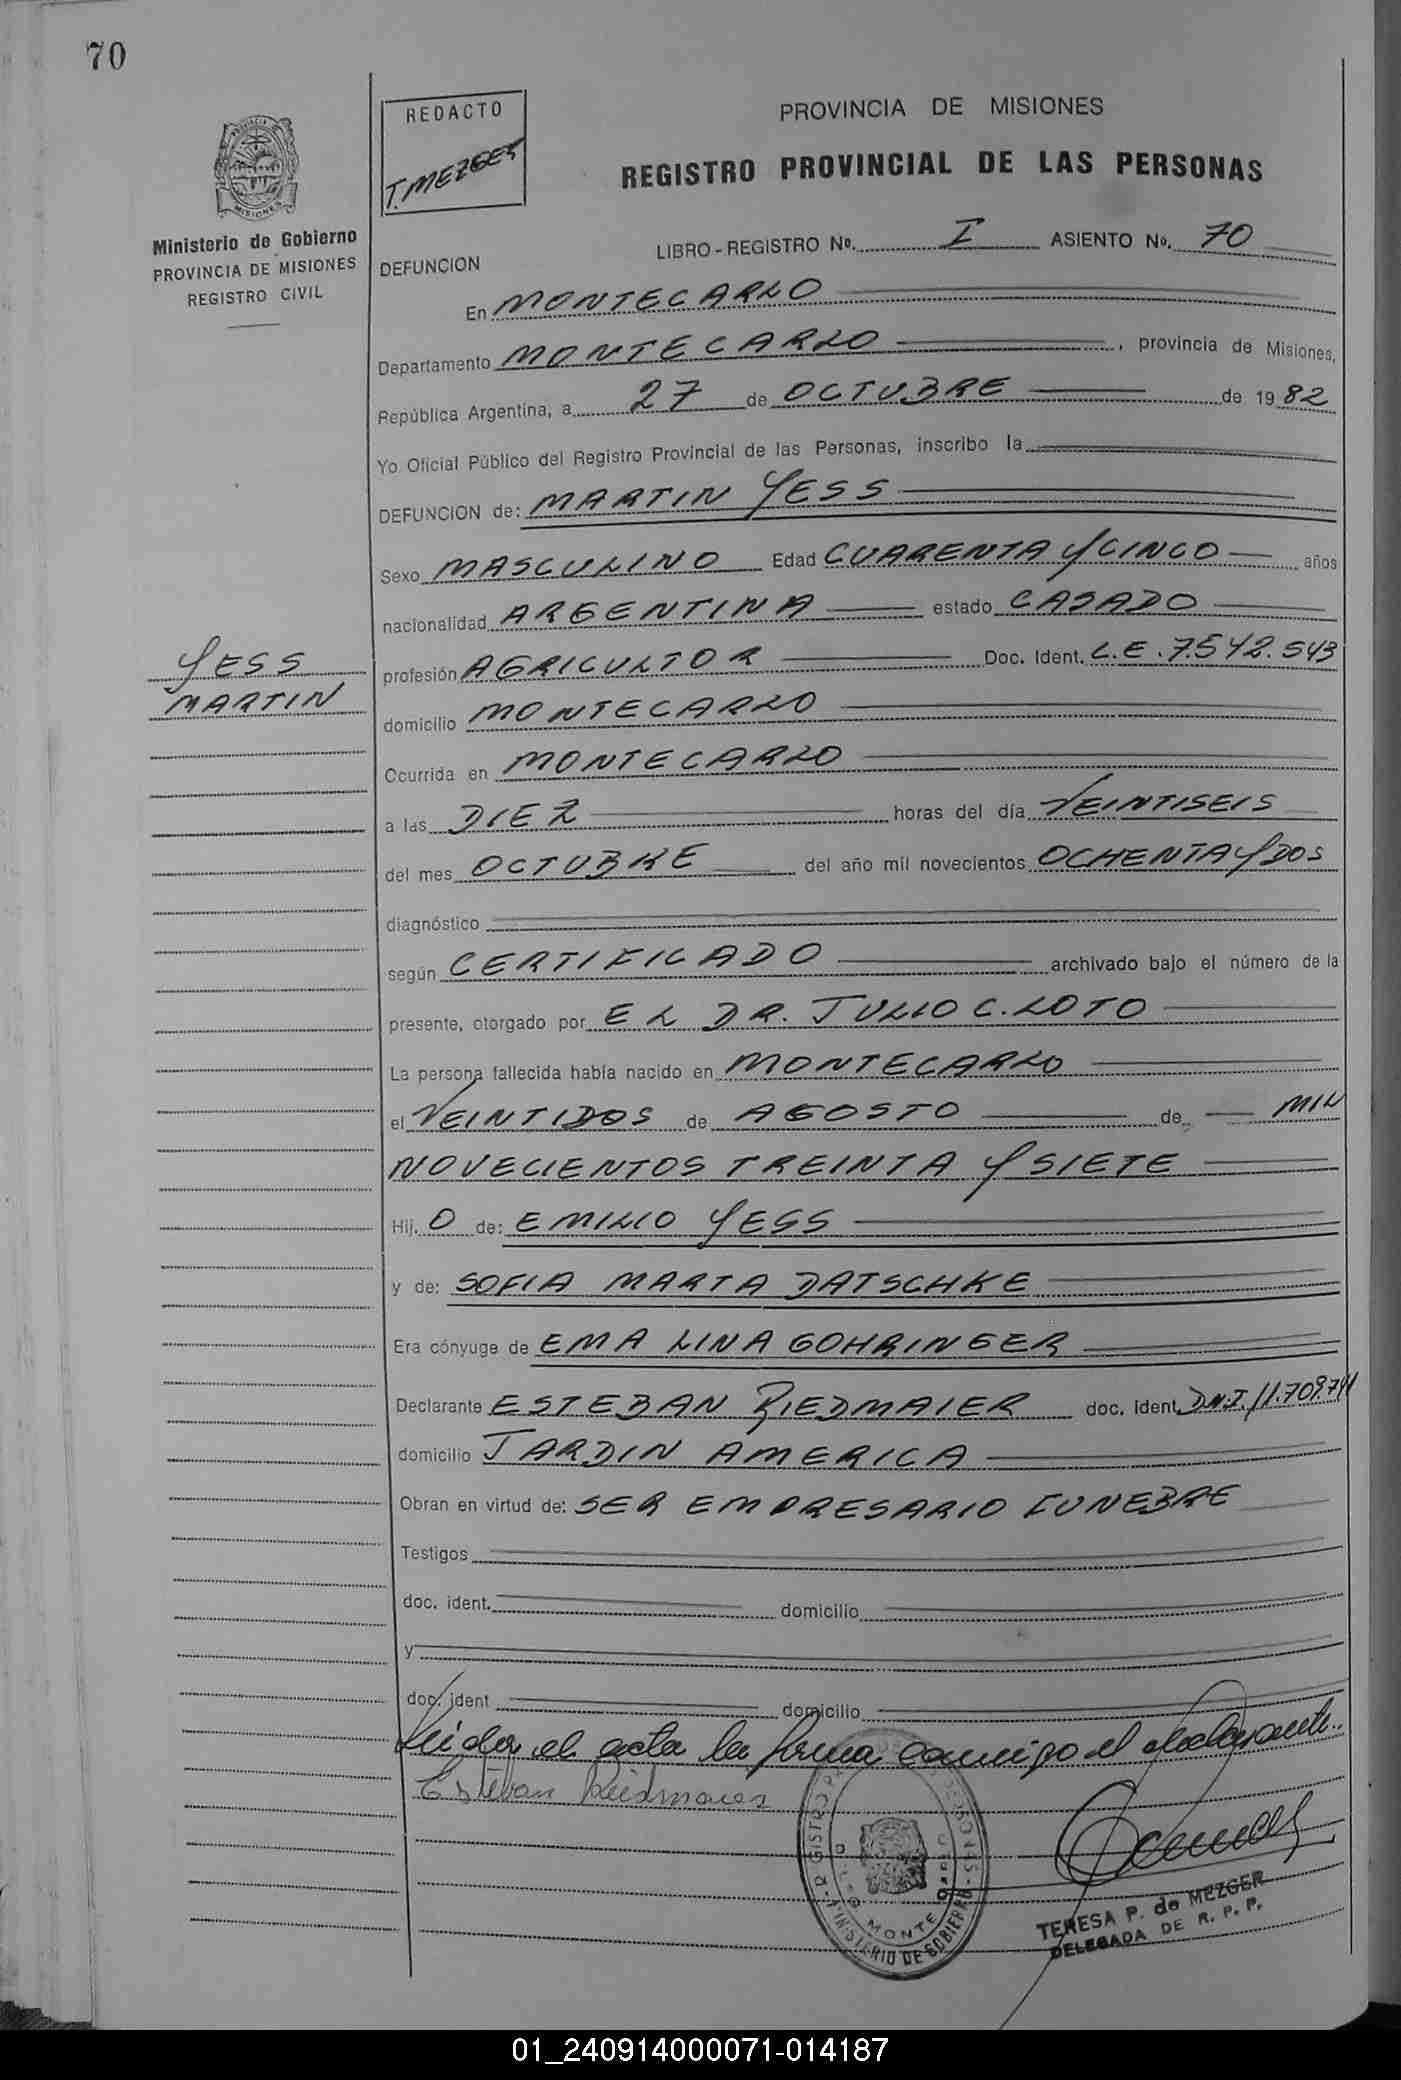 70
REDACTO
T. MEZGER
PROVINCIA DE MISIONES
REGISTRO PROVINCIAL DE LAS PERSONAS
PROVINCIA
MISIONES
Ministerio de Gobierno
PROVINCIA DE MISIONES
REGISTRO CIVIL
LIBRO-REGISTRO Nº. I ASIENTO Nº. 70
DEFUNCION
En MONTECARLO
Departamento MONTECARLO, provincia de Misiones,
República Argentina, a 27 de OCTUBRE de 1982
Yo Oficial Público del Registro Provincial de las Personas, inscribo la
DEFUNCION de: MARTIN YESS
Sexo MASCULINO Edad CUARENTA Y CINCO años
nacionalidad ARGENTINA estado CASADO
YESS
MARTIN
profesión AGRICULTOR Doc. Ident. L.E. 7.542.543
domicilio MONTECARLO
Ocurrida en MONTECARLO
a las DIEZ horas del día VEINTISEIS
del mes OCTUBRE del año mil novecientos OCHENTA Y DOS
diagnóstico
según CERTIFICADO archivado bajo el número de la
presente, otorgado por EL DR. JULIO C. LOTO
La persona fallecida había nacido en MONTECARLO
el VEINTIDOS de AGOSTO de MIL
NOVECIENTOS TREINTA Y SIETE
Hij. O de: EMILIO YESS
y de: SOFIA MARTA DATSCHKE
Era cónyuge de EMA LINA GOHRINGER
Declarante ESTEBAN RIEDMAIER doc. Ident. D.N.I. 11.709.791
domicilio JARDIN AMERICA
Obran en virtud de: SER EMPRESARIO FUNEBRE
Testigos
doc. ident. domicilio
y
doc. ident domicilio
Leida el acta la firma conmigo el declarante.
Esteban Riedmaier
MINISTERIO DE GOBIERNO
MONTE CARLO
TERESA P. de MEZGER
DELEGADA DE R. P. P.
01_240914000071-014187